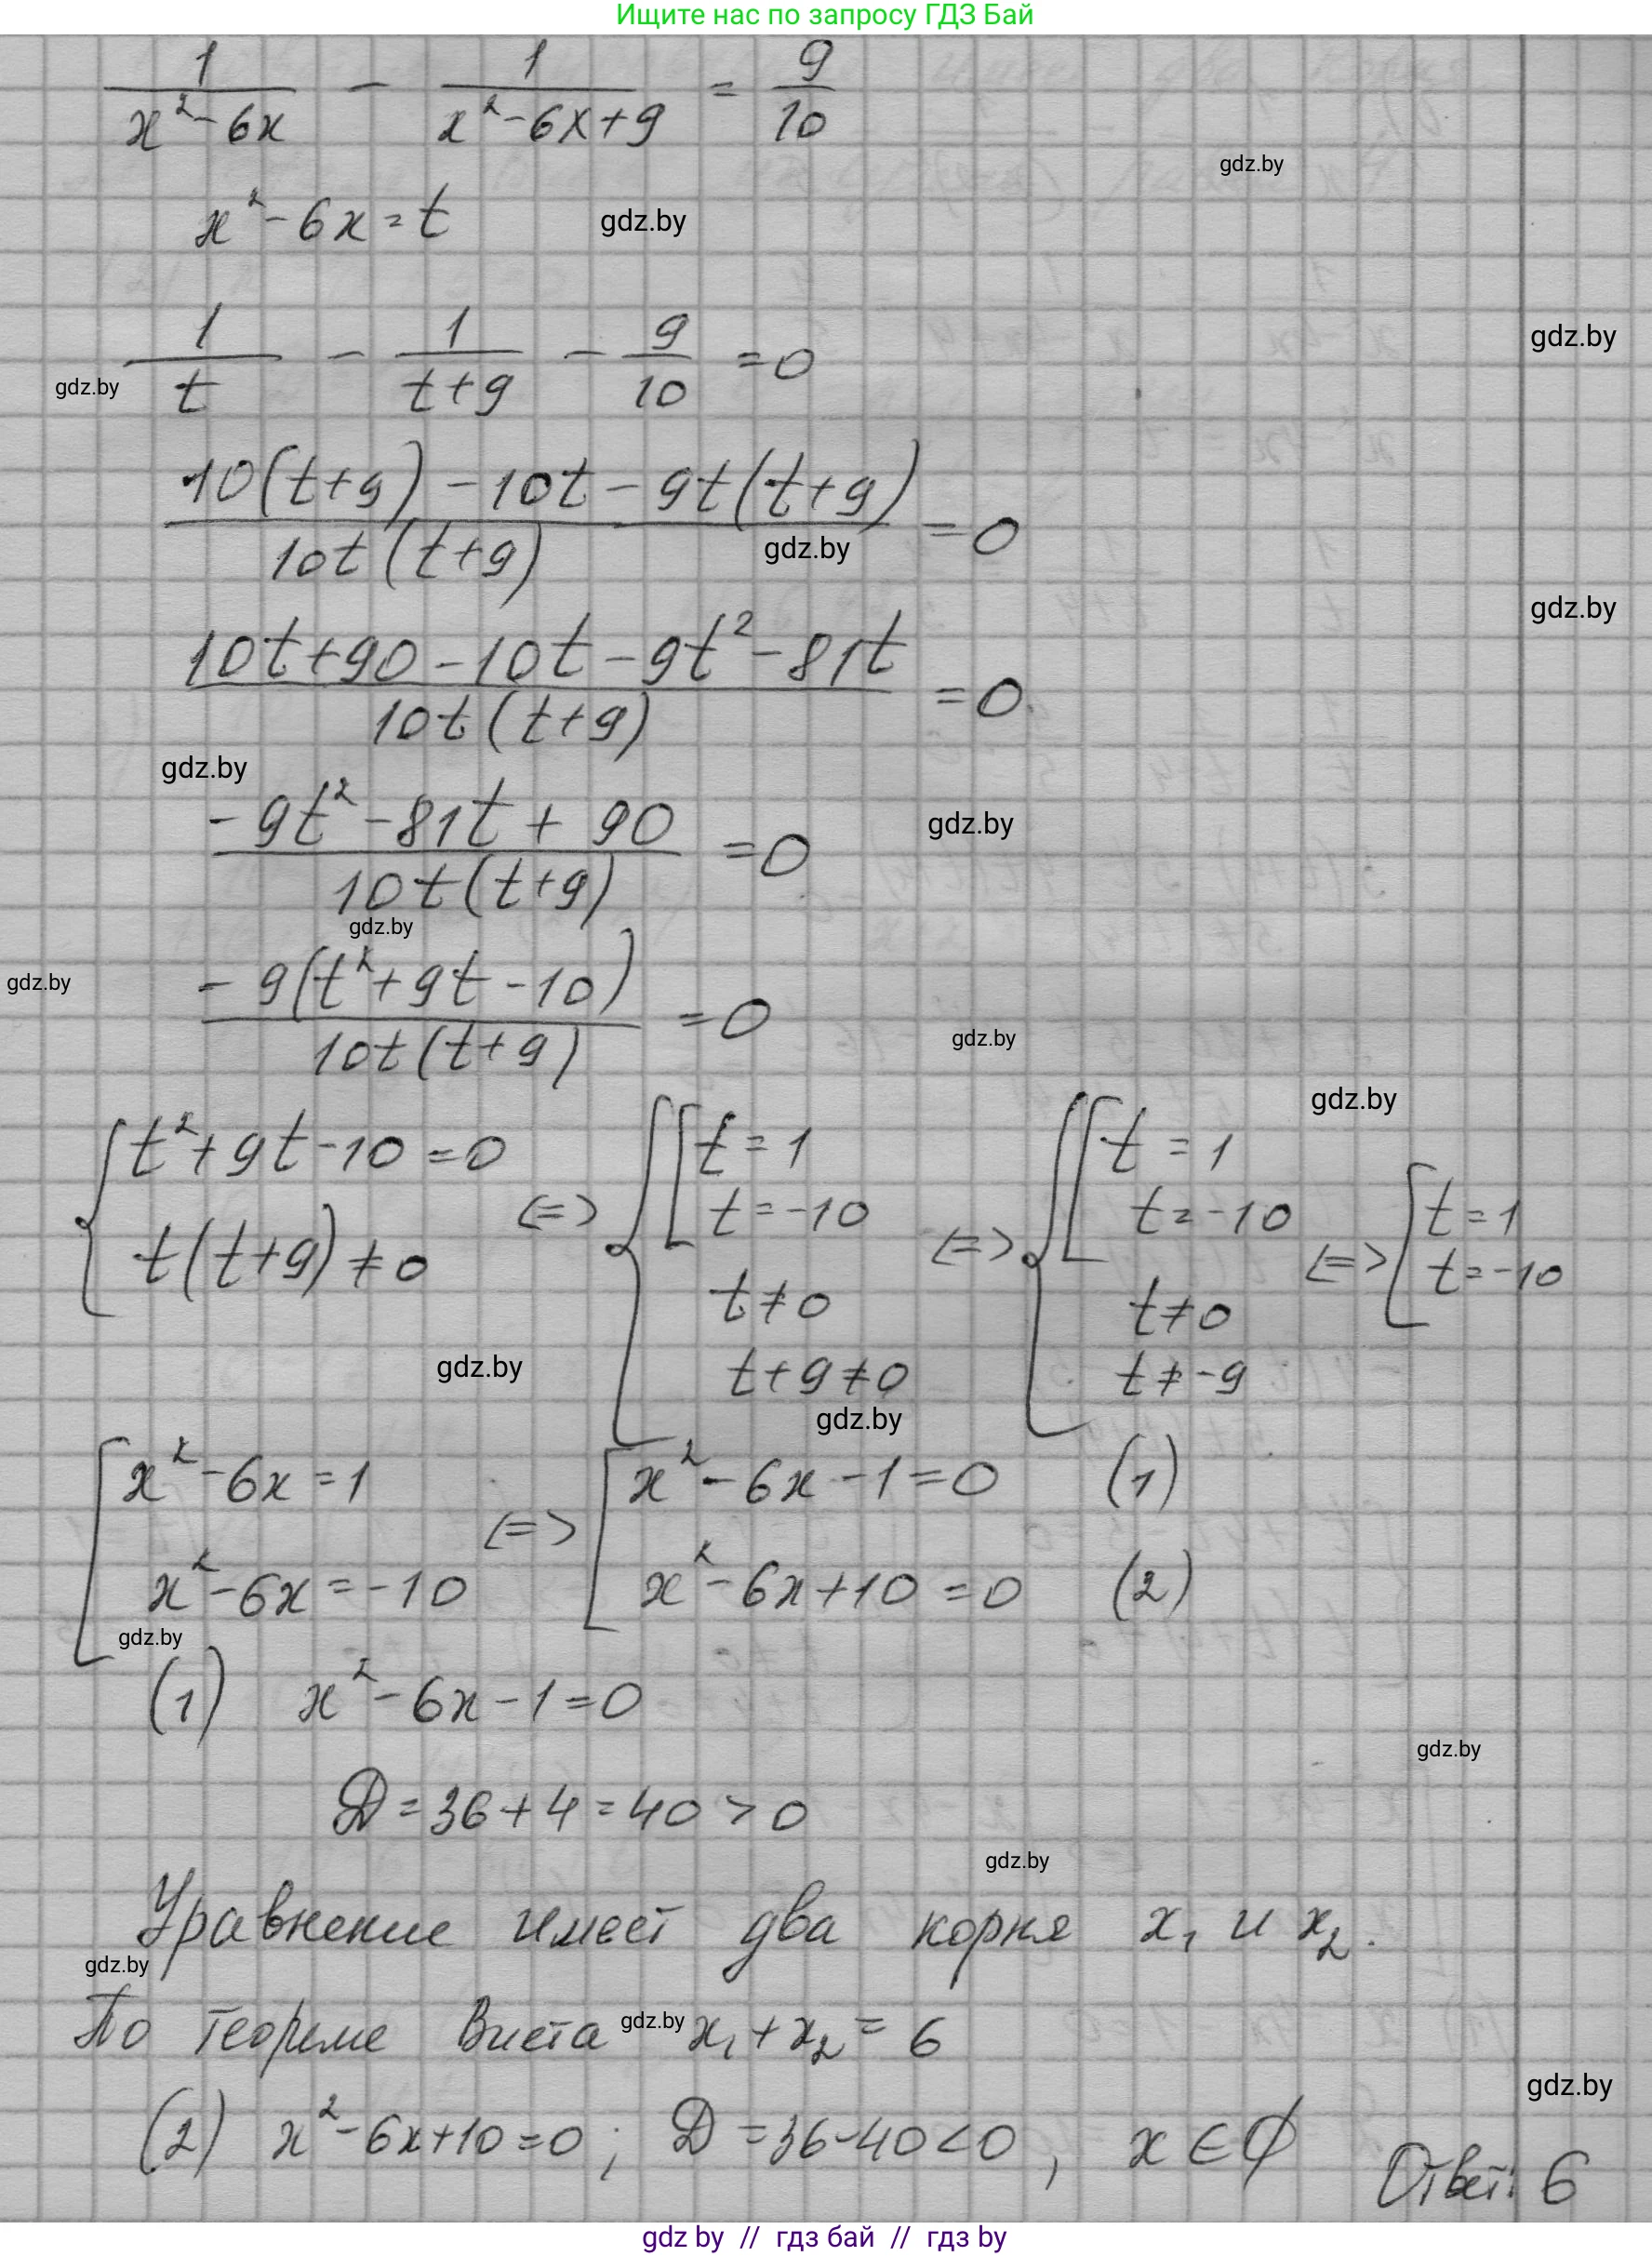 Ищите нас по запросу ГДЗ Бай
1/(x²-6x) - 1/(x²-6x+9) = 9/10
gdz.by
x²-6x=t gdz.by
1/t - 1/(t+9) - 9/10 =0
gdz.by
gdz.by
(10(t+9)-10t-9t(t+9))/(10t(t+9)) =0
gdz.by
(10t+90-10t-9t²-81t)/(10t(t+9)) =0
gdz.by
gdz.by
(-9t²-81t+90)/(10t(t+9)) =0
gdz.by
gdz.by
(-9(t²+9t-10))/(10t(t+9)) =0
gdz.by
gdz.by
gdz.by
{ t²+9t-10=0 t(t+9)≠0 <=> { [ t=1 t=-10 t≠0 t+9≠0 <=> { [ t=1 t=-10 t≠0 t≠-9 <=> [ t=1 t=-10
gdz.by
gdz.by
gdz.by
[ x²-6x=1 x²-6x=-10 <=> [ x²-6x-1=0 (1) x²-6x+10=0 (2)
gdz.by
(1) x²-6x-1=0
gdz.by
D=36+4=40>0
gdz.by
Уравнение имеет два корня x₁ и x₂.
gdz.by
По теореме Виета gdz.by x₁+x₂=6
gdz.by
(2) x²-6x+10=0; D=36-40<0, x∈∅
Ответ: 6
gdz by // гдз бай // гдз by